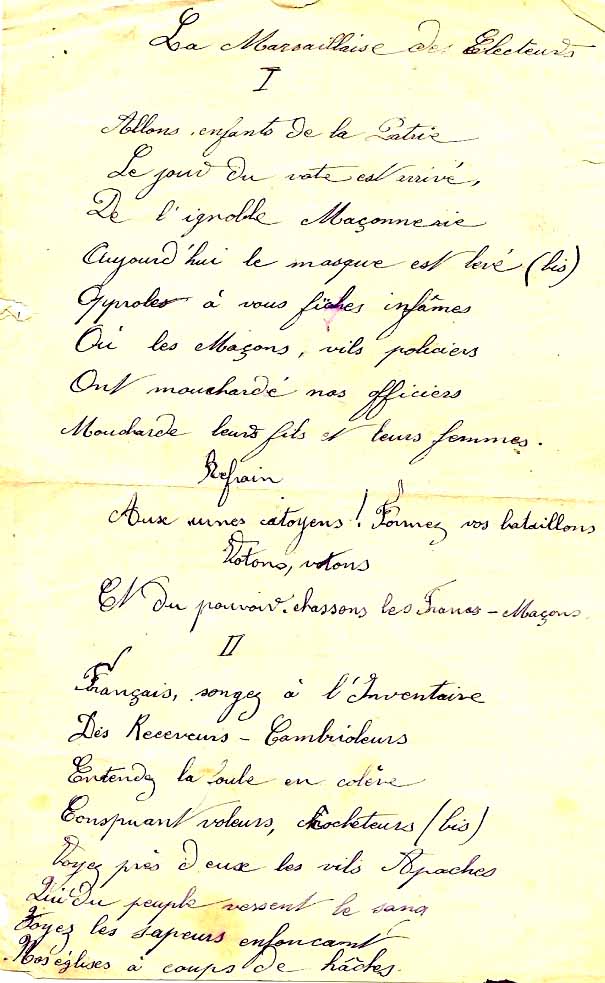 La Marsaillaise des Electeurs
I
Allons enfants de la Patrie
Le jour du vote est arrivé,
De l'ignoble Maçonnerie
Aujourd'hui le masque est levé (bis)
à vous fiches infâmes
Où les Maçons, vils policiers
Ont mouchardé nos officiers
Mouchardé leurs fils et leurs femmes.
Refrain
Aux urnes citoyens ! Formez vos bataillons
Votons, votons
Et du pouvoir chassons les Francs-Maçons.
II
Français, songez à l'Inventaire
Des Receveurs - Cambrioleurs
Entendez la foule en colère
Conspuant voleurs, crocheteurs (bis)
Voyez près d'eux les vils Apaches
Qui du peuple versent le sang
Voyez les sapeurs enfoncant
Nos églises à coups de hâches.